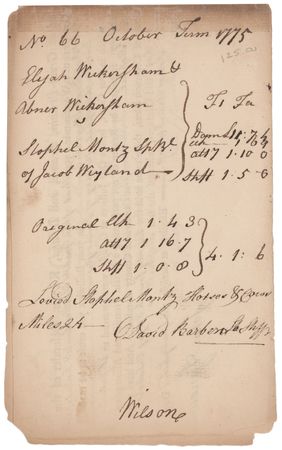 No 66 October Term 1775
125.00
Elijah Wickersham &
Abner Wickersham
vs Fi Fa
Stophel Montz Spbl.
of Jacob Weyland
Att7 1 . 10 . 0
Shff 1 . 5 . 6
Original Clk 1 . 4 . 3
Att7 1 16 . 7
Shff 1 . 0 . 8
4 . 1 . 6
Levied Stophel Montz Horses & Cows
Miles 24 David Barber Shff
Wilson